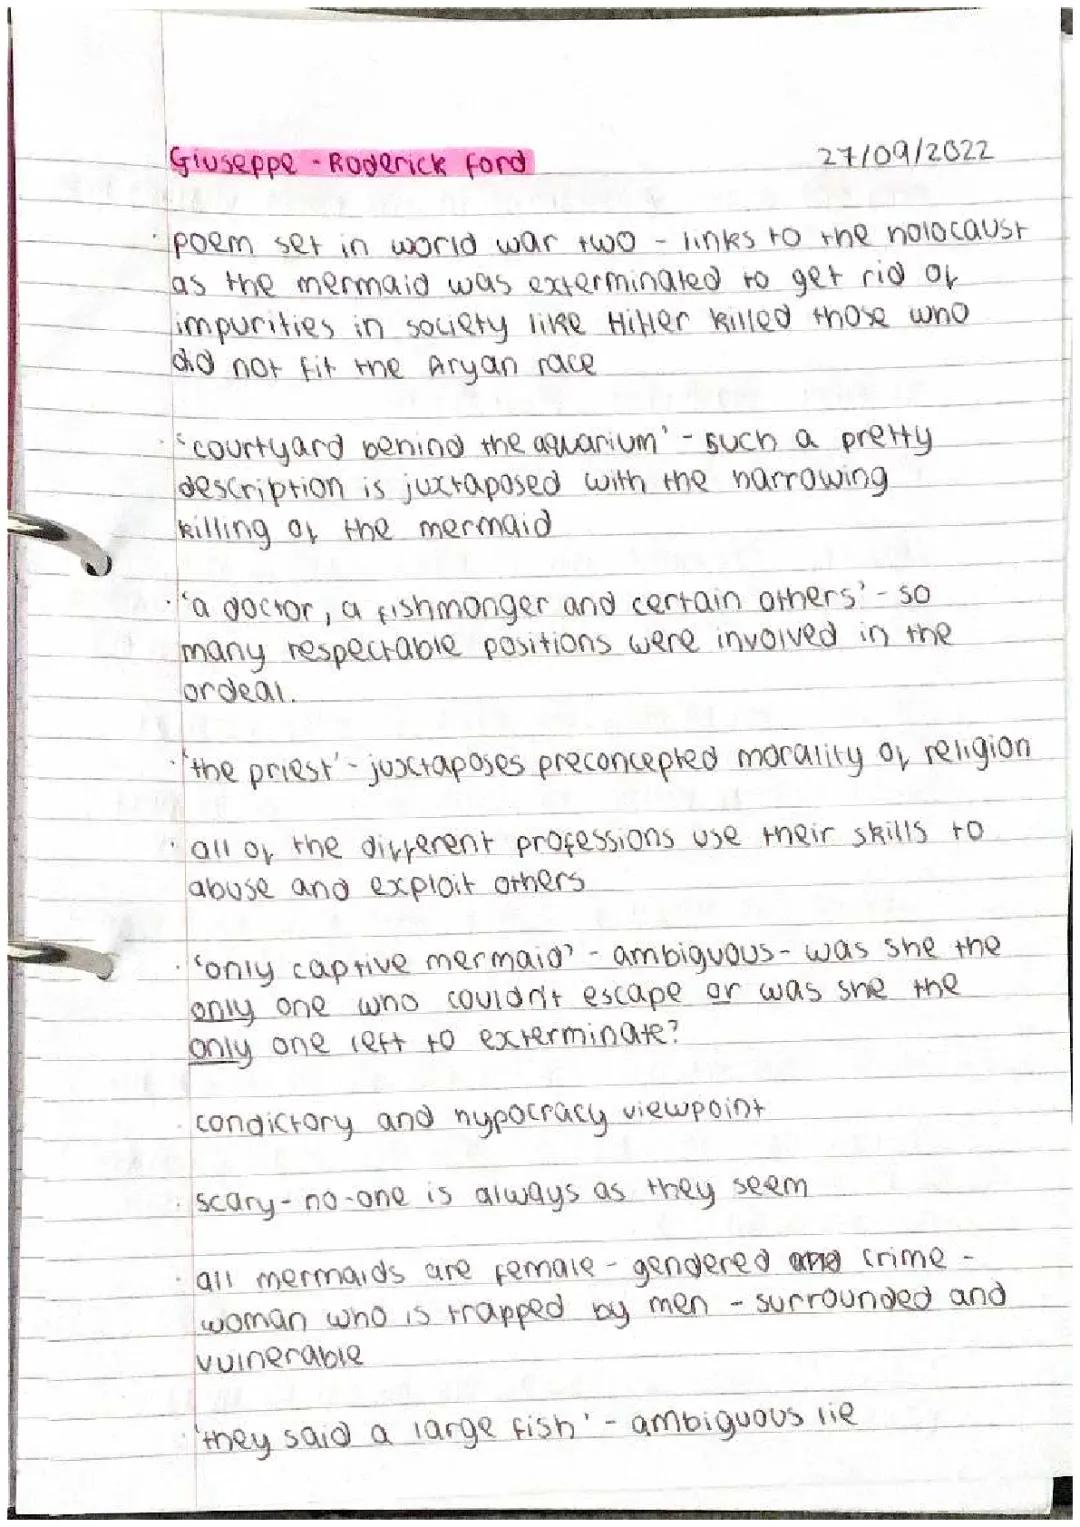 Giuseppe - Roderick Ford 27/09/2022
· poem set in world war two - links to the holocaust
as the mermaid was exterminated to get rid of
impurities in society like Hitler killed those who
did not fit the Aryan race
· 'courtyard behind the aquarium' - such a pretty
description is juxtaposed with the harrowing
killing of the mermaid
· 'a doctor, a fishmonger and certain others' - so
many respectable positions were involved in the
ordeal.
· 'the priest' - juxtaposes preconcepted morality of religion
· all of the different professions use their skills to
abuse and exploit others
· 'only captive mermaid' - ambiguous - was she the
only one who couldn't escape or was she the
only one left to exterminate?
· condictory and hypocracy viewpoint
· scary - no-one is always as they seem
· all mermaids are female - gendered crime -
woman who is trapped by men - surrounded and
vulnerable
· 'they said a large fish' - ambiguous lie